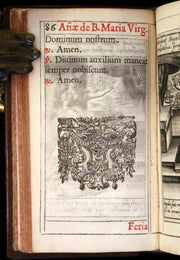 86 Añæ de B. Maria Virg.
Dominum nostrum.
℟. Amen.
℣. Diuinum auxilium maneat
semper nobiscum.
℟. Amen.
Feria